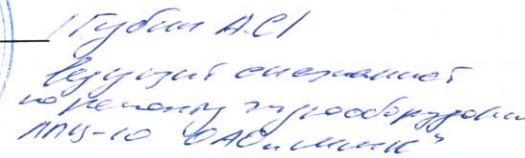 /Губин А.С/
Ведущий специалист
по ремонту гидрооборудован
ЛПЦ-10 ОАО "ММК"